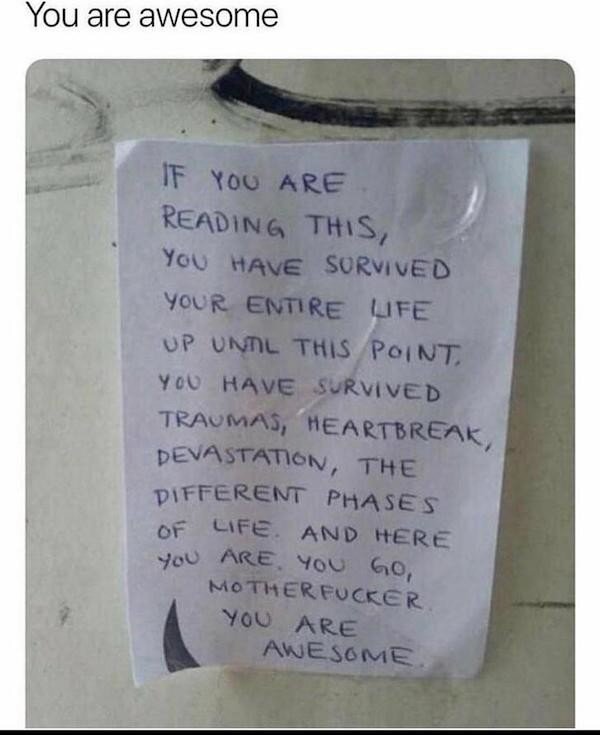 You are awesome
IF YOU ARE
READING THIS,
YOU HAVE SURVIVED
YOUR ENTIRE LIFE
UP UNTIL THIS POINT.
YOU HAVE SURVIVED
TRAUMAS, HEARTBREAK,
DEVASTATION, THE
DIFFERENT PHASES
OF LIFE. AND HERE
YOU ARE. YOU GO,
MOTHERFUCKER.
YOU ARE
AWESOME.